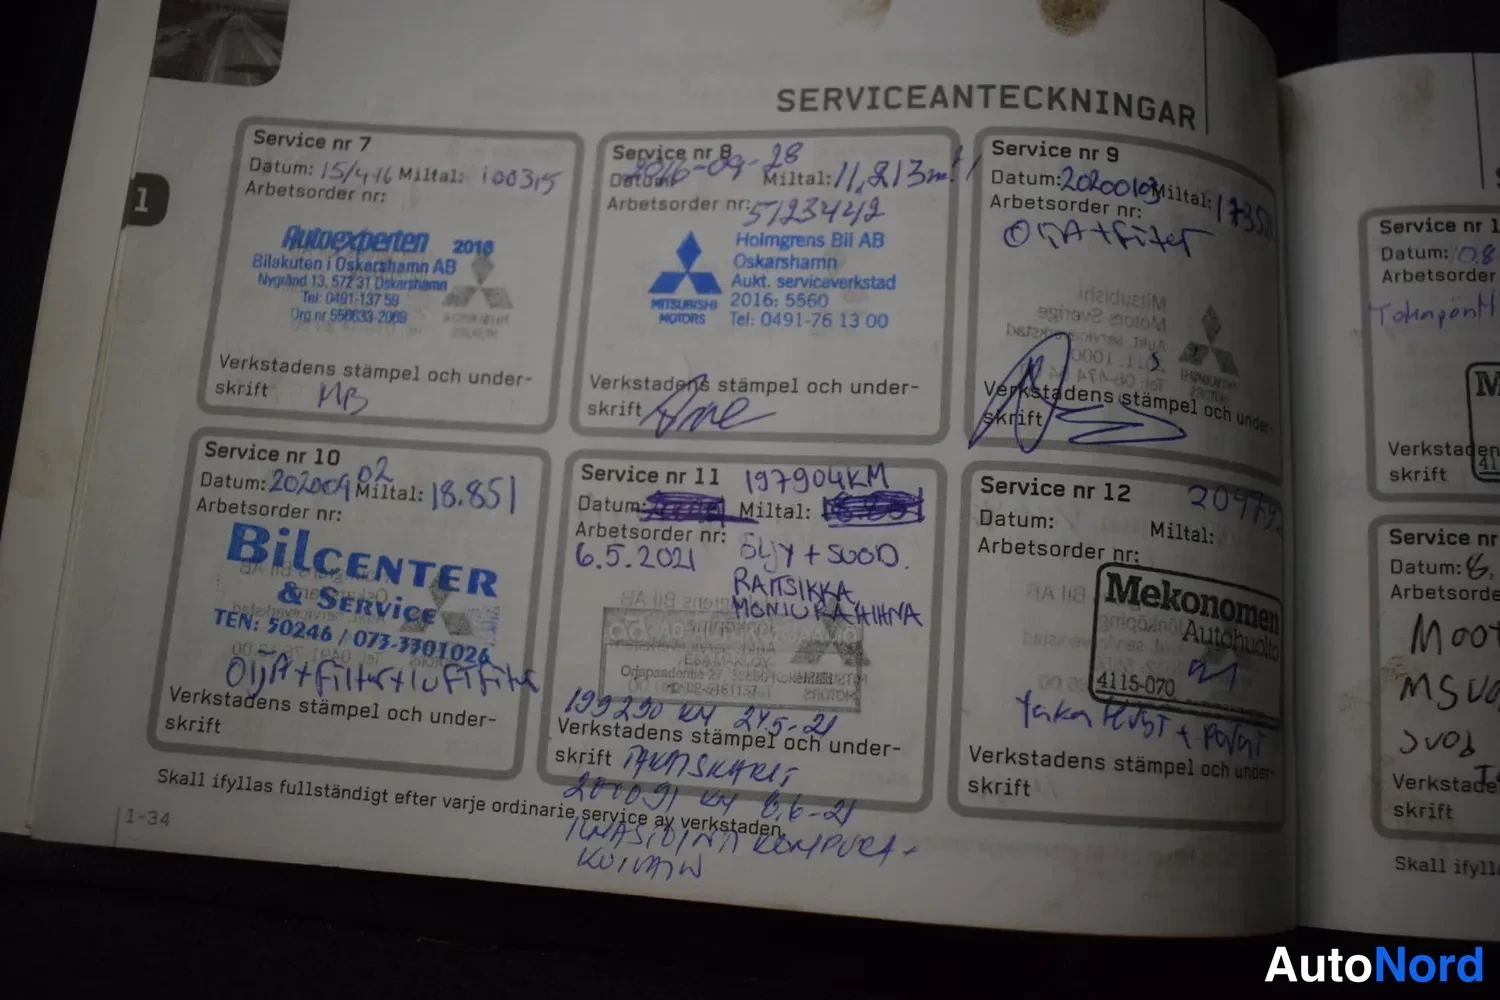 SERVICEANTECKNINGAR
1
Service nr 7
Datum: 15/4-16 Miltal: 100315
Arbetsorder nr:
Autoexperten 2016
Bilakuten i Oskarshamn AB
Nygränd 13, 572 31 Oskarshamn
Tel: 0491-137 59
Org.nr 556633-2069
Verkstadens stämpel och under-
skrift MB
Service nr 8
Datum: 2016-09-28 Miltal: 11,213mil
Arbetsorder nr: 5123442
Holmgrens Bil AB
Oskarshamn
Aukt. serviceverkstad
2016: 5560
Tel: 0491-76 13 00
MITSUBISHI
MOTORS
Verkstadens stämpel och under-
skrift
Service nr 9
Datum: 20200103 Miltal:
Arbetsorder nr:
OljA + Filter
Verkstadens stämpel och under-
skrift
Service nr 10
Datum: 20200902 Miltal: 18.851
Arbetsorder nr:
BILCENTER
& SERVICE
TEN: 50246 / 073-3301026
OljA + Filter + luftfilter
Verkstadens stämpel och under-
skrift
Service nr 11 197904KM
Datum: Miltal:
Arbetsorder nr:
6.5.2021 ÖLJY + SUOD.
RAITISILMA
199290 KM 24.5-21
Verkstadens stämpel och under-
skrift
200091 KM 8.6-21
Service nr 12
Datum: Miltal:
Arbetsorder nr:
Mekonomen
Autohuolto
4115-070
Verkstadens stämpel och under-
skrift
Skall ifyllas fullständigt efter varje ordinarie service av verkstaden.
1-34
Service nr 1
Datum: 10.8
Arbetsorder
Verkstaden
skrift
Service nr
Datum: 8.
Arbetsorde
Moot
Verkstade
skrift
Skall ifyll
AutoNord